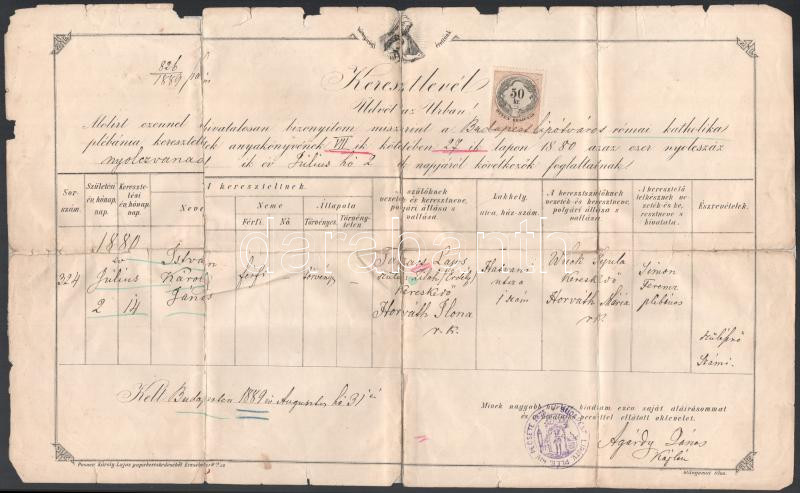 826
1889
Keresztlevél
Üdvöt az Úrban!
50
kr.
Alolirt ezennel hivatalosan bizonyitom miszerint a Budapest lipótvárosi római katholika
plébánia keresztelt anyakönyvének VII ik kötetében 27 ik lapon 1880 azaz ezer nyolcszáz
nyolczvanad ik év Július hó 2 ik napjáról következők foglaltatnak.
A kereszteltnek
Sor-
szám.
Születési
év, hónap,
nap.
Keresztelé-
tési
év, hónap,
nap.
Neve
Neme
Férfi.
Nő.
Állapota
Törvényes.
Törvény-
telen
szülőknek
vezeték- és keresztneve,
polgári állása s
vallása.
Lakhely,
utcza, ház-szám.
A keresztszülőknek
vezeték- és keresztneve,
polgári állása s
vallása.
A keresztelő
lelkésznek ve-
zeték- és ke-
resztneve s
hivatala.
Észrevételek.
324
1880
év
Július
2 14
István
Károly
János
férfi
törvényes
–
Takács Lajos
Kereskedő
Horváth Ilona
r. k.
Hatvani
utcza
1 szám
Gyula
Kereskedő
Horváth Mária
r. k.
Simon
Ferencz
plébános
Kelt Budapesten 1889 év Augusztus hó 31 én
Minek nagyobb hiteléül kiadtam ezen saját aláirásommal
és hivatalos pecséttel ellátott oklevelet.
Agárdy János
Káplán
Posner Károly Lajos